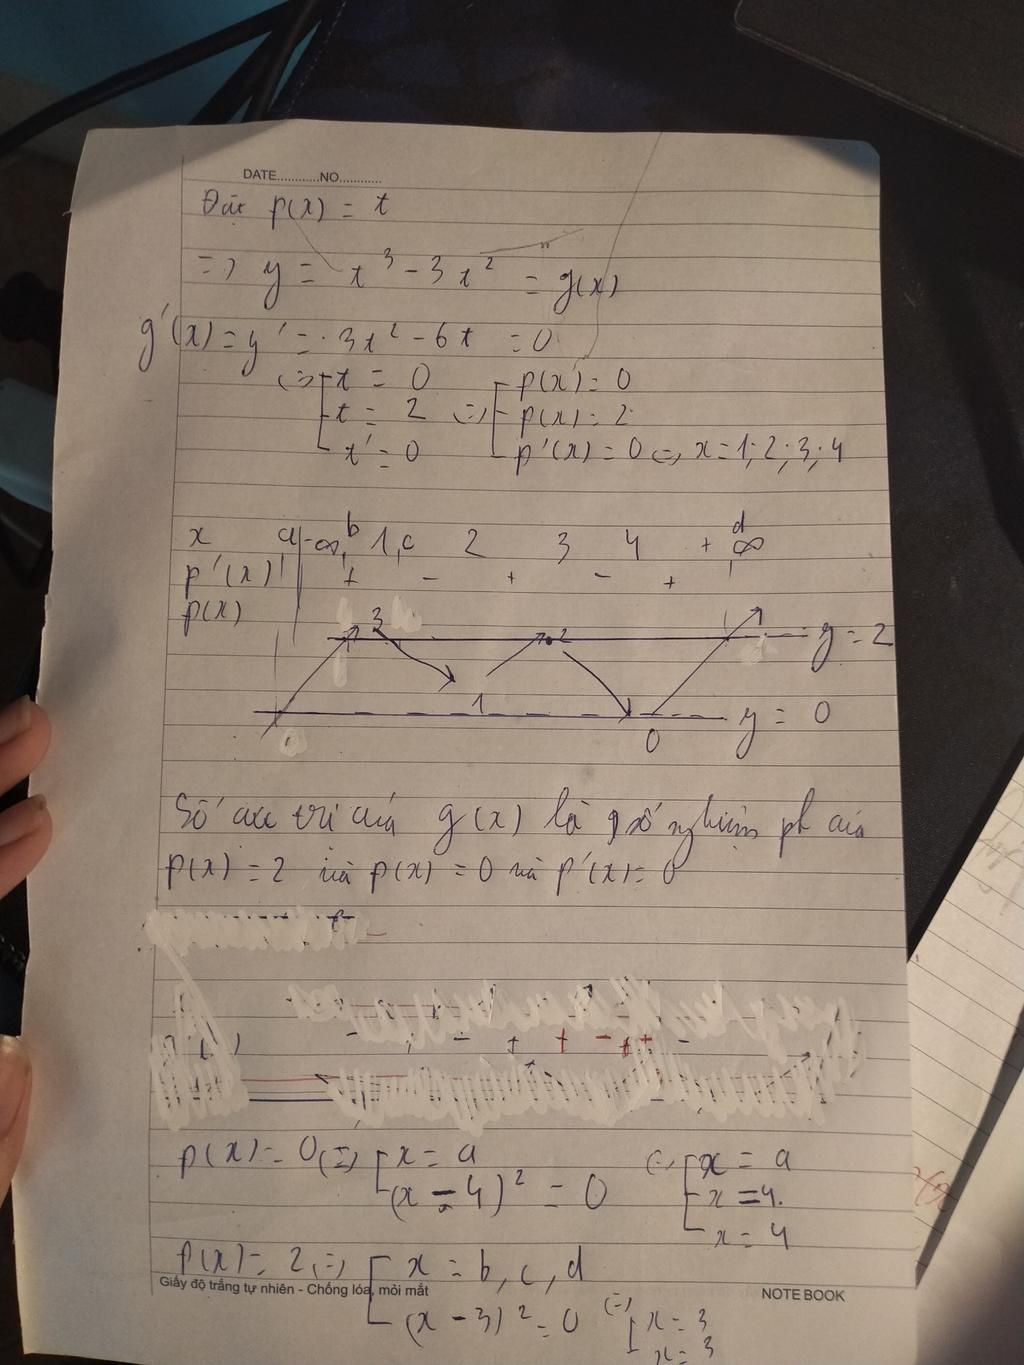 DATE............NO............
Đặt p(x) = t
=> y = t³ - 3t² = g(x)
g'(x) = y' = 3t² - 6t = 0
(=) [ t = 0 [ p(x) = 0
t = 2 (=) p(x) = 2
t' = 0 p'(x) = 0 (=) x = 1; 2; 3; 4
x a -∞ b 1 , c 2 3 4 + ∞ d
p'(x) + - + - +
p(x) 3 2 y = 2
1 0 y = 0
Số cực trị của g(x) là số nghiệm pb của
p(x) = 2 và p(x) = 0 và p'(x) = 0
- - + + - + + -
p(x) = 0 (=) [ x = a (=) [ x = a
(x - 4)² = 0 x = 4
x = 4
p(x) = 2 (=) [ x = b, c, d
Giấy độ trắng tự nhiên - Chống lóa, mỏi mắt NOTE BOOK
(x - 3)² = 0 (=) [ x = 3
x = 3